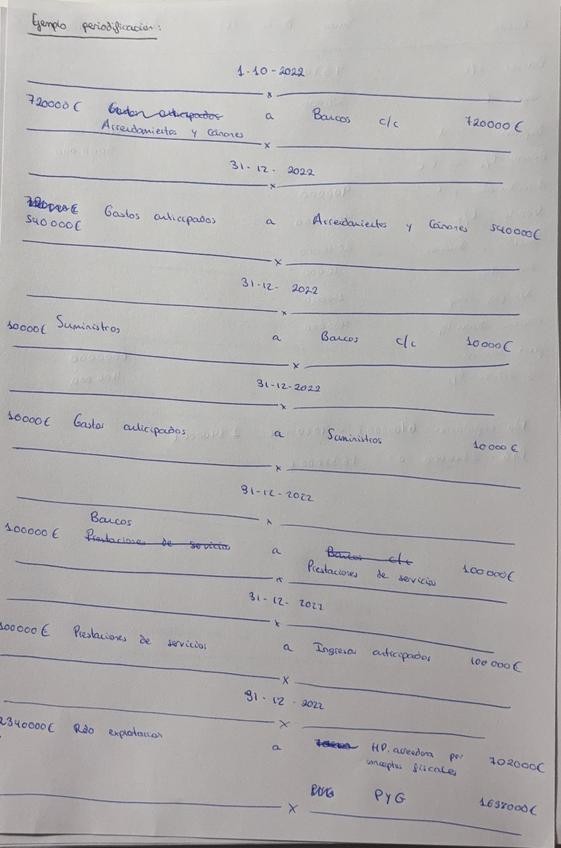 Ejemplo periodificación:
1-10-2022
720000€ Gastos anticipados a Bancos c/c 720000€
Arrendamientos y cánones
31-12-2022
720000€ Gastos anticipados a Arrendamientos y Cánones 540000€
540000€
31-12-2022
10000€ Suministros a Bancos c/c 10000€
31-12-2022
10000€ Gastos anticipados a Suministros 10000€
31-12-2022
Bancos
100000€ Prestaciones de servicio a Bancos c/c 100000€
Prestaciones de servicios
31-12-2022
100000€ Prestaciones de servicios a Ingresos anticipados 100000€
31-12-2022
2340000€ Rdo explotación a HP. acreedora por 702000€
conceptos fiscales
PyG 1638000€